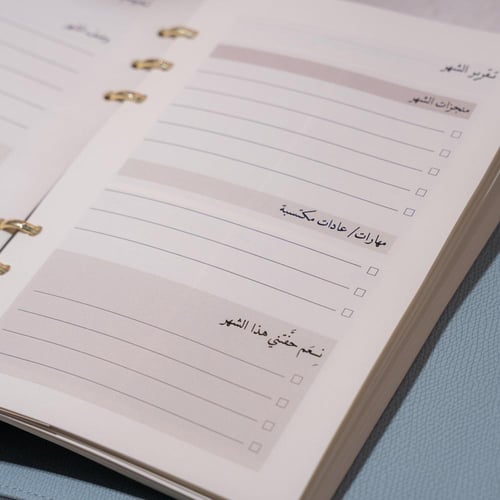 تقرير الشهر
منجزات الشهر
مهارات/ عادات مكتسبة
نِعَم حفّتني هذا الشهر